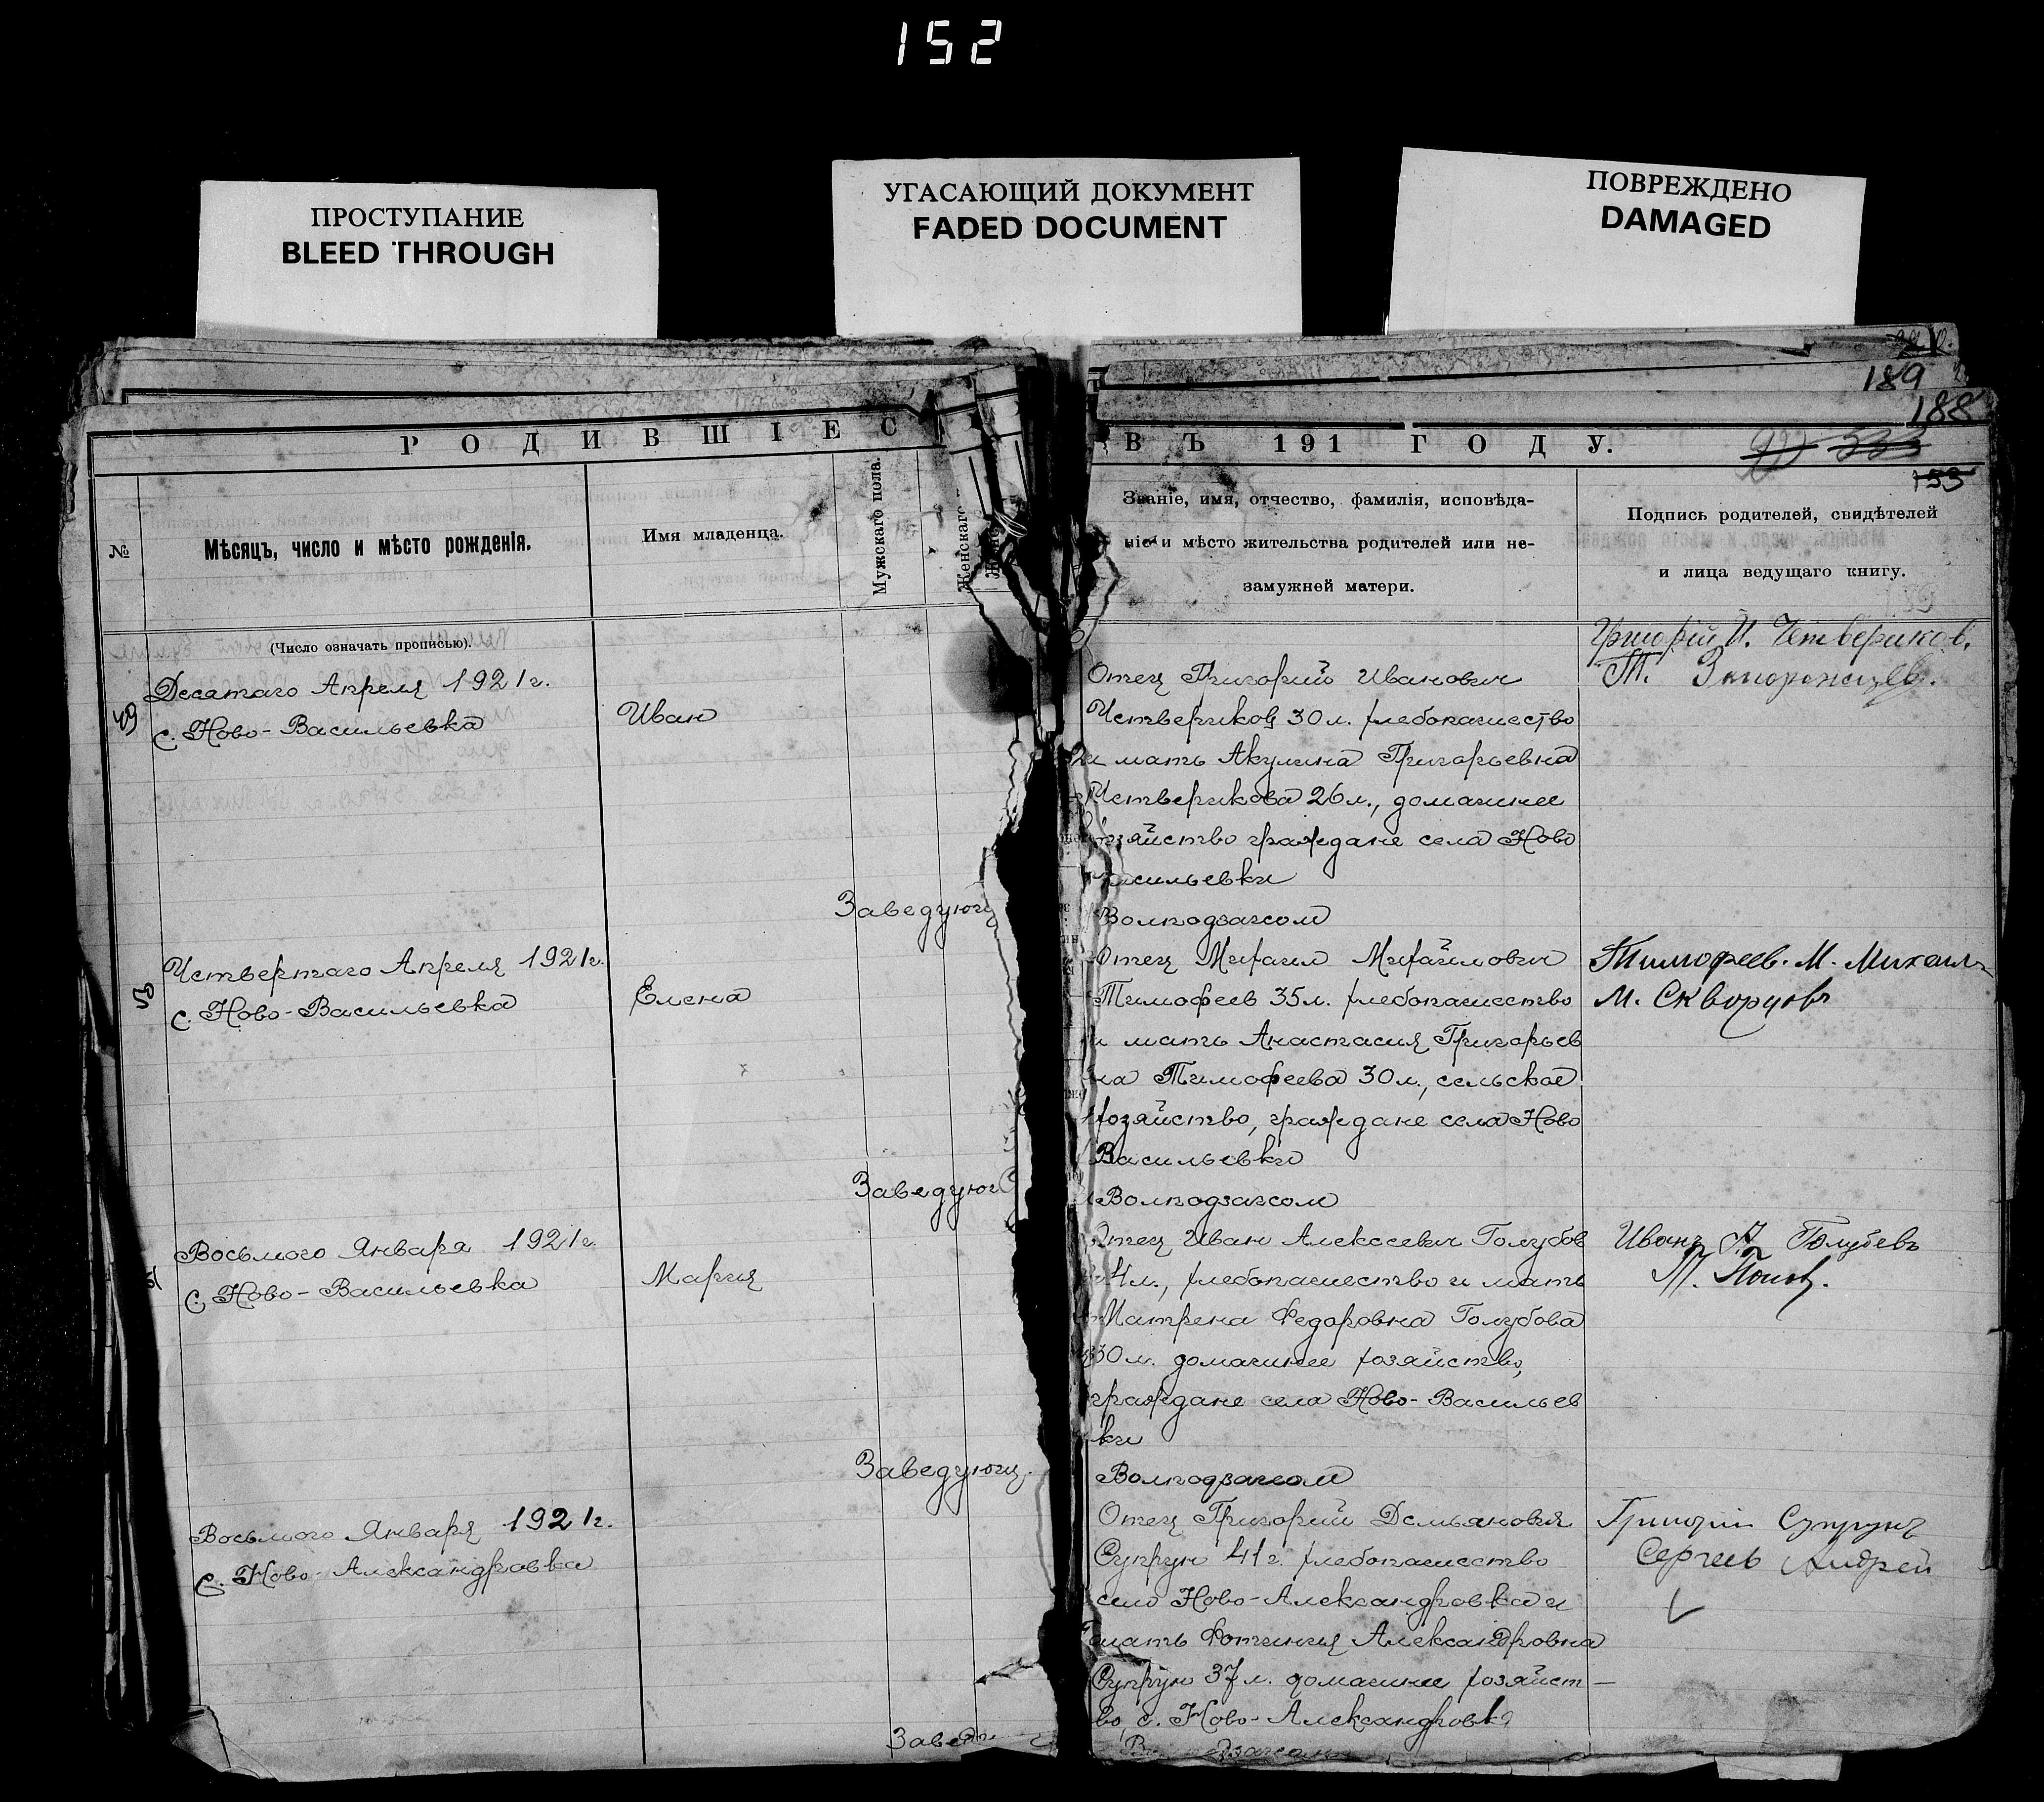 152
ПРОСТУПАНИЕ
BLEED THROUGH
УГАСАЮЩИЙ ДОКУМЕНТ
FADED DOCUMENT
ПОВРЕЖДЕНО
DAMAGED
189
188
РОДИВШІЕС
№
Мѣсяцъ, число и мѣсто рожденія.
Имя младенца.
Мужскаго пола.
Женскаго
(Число означать прописью).
49
Десятаго Апреля 1921г.
с. Ново-Васильевка
Иван
Заведующ
50
Четвертаго Апреля 1921г.
с. Ново-Васильевка
Елена
Заведующ
51
Восьмого Января 1921г.
с. Ново-Васильевка
Мария
Заведующ.
Восьмого Января 1921г.
с. Ново-Александровка
Завед
ВЪ 191 ГОДУ.
333
153
Званіе, имя, отчество, фамилія, исповѣда-
ніе и мѣсто жительства родителей или не-
замужней матери.
Подпись родителей, свидѣтелей
и лица ведущаго книгу.
Отец Григорий Иванович
Четвериков 30 л. хлебопашество
и мать Акулина Григорьевна
Четверикова 26 л., домашнее
хозяйство граждане села Ново
Васильевки
Волподзагсом
Григорій И. Четвериков.
Т. Запорожцев.
Отец Михаил Михайлович
Тимофеев 35 л. хлебопашество
и мать Анастасия Григорьев
на Тимофеева 30 л., сельское
хозяйство, граждане села Ново
Васильевки
Волподзагсом
Тимофеев. М. Михаил
М. Скворцовъ
Отец Иван Алексеевич Голубов
4 л., хлебопашество и мать
Матрена Федоровна Голубова
30 л. домашнее хозяйство,
граждане села Ново-Васильев
ки
Волподзагсом
Иванъ А Голубевъ
Т. Попов.
Отец Григорий Демьянович
Супрун 41 г. хлебопашество
село Ново-Александровка и
мать Фотиния Александровна
Супрун 37 л. домашнее хозяйст-
во, с. Ново-Александровка
Григорій Супрунъ
Сергеев Андрей